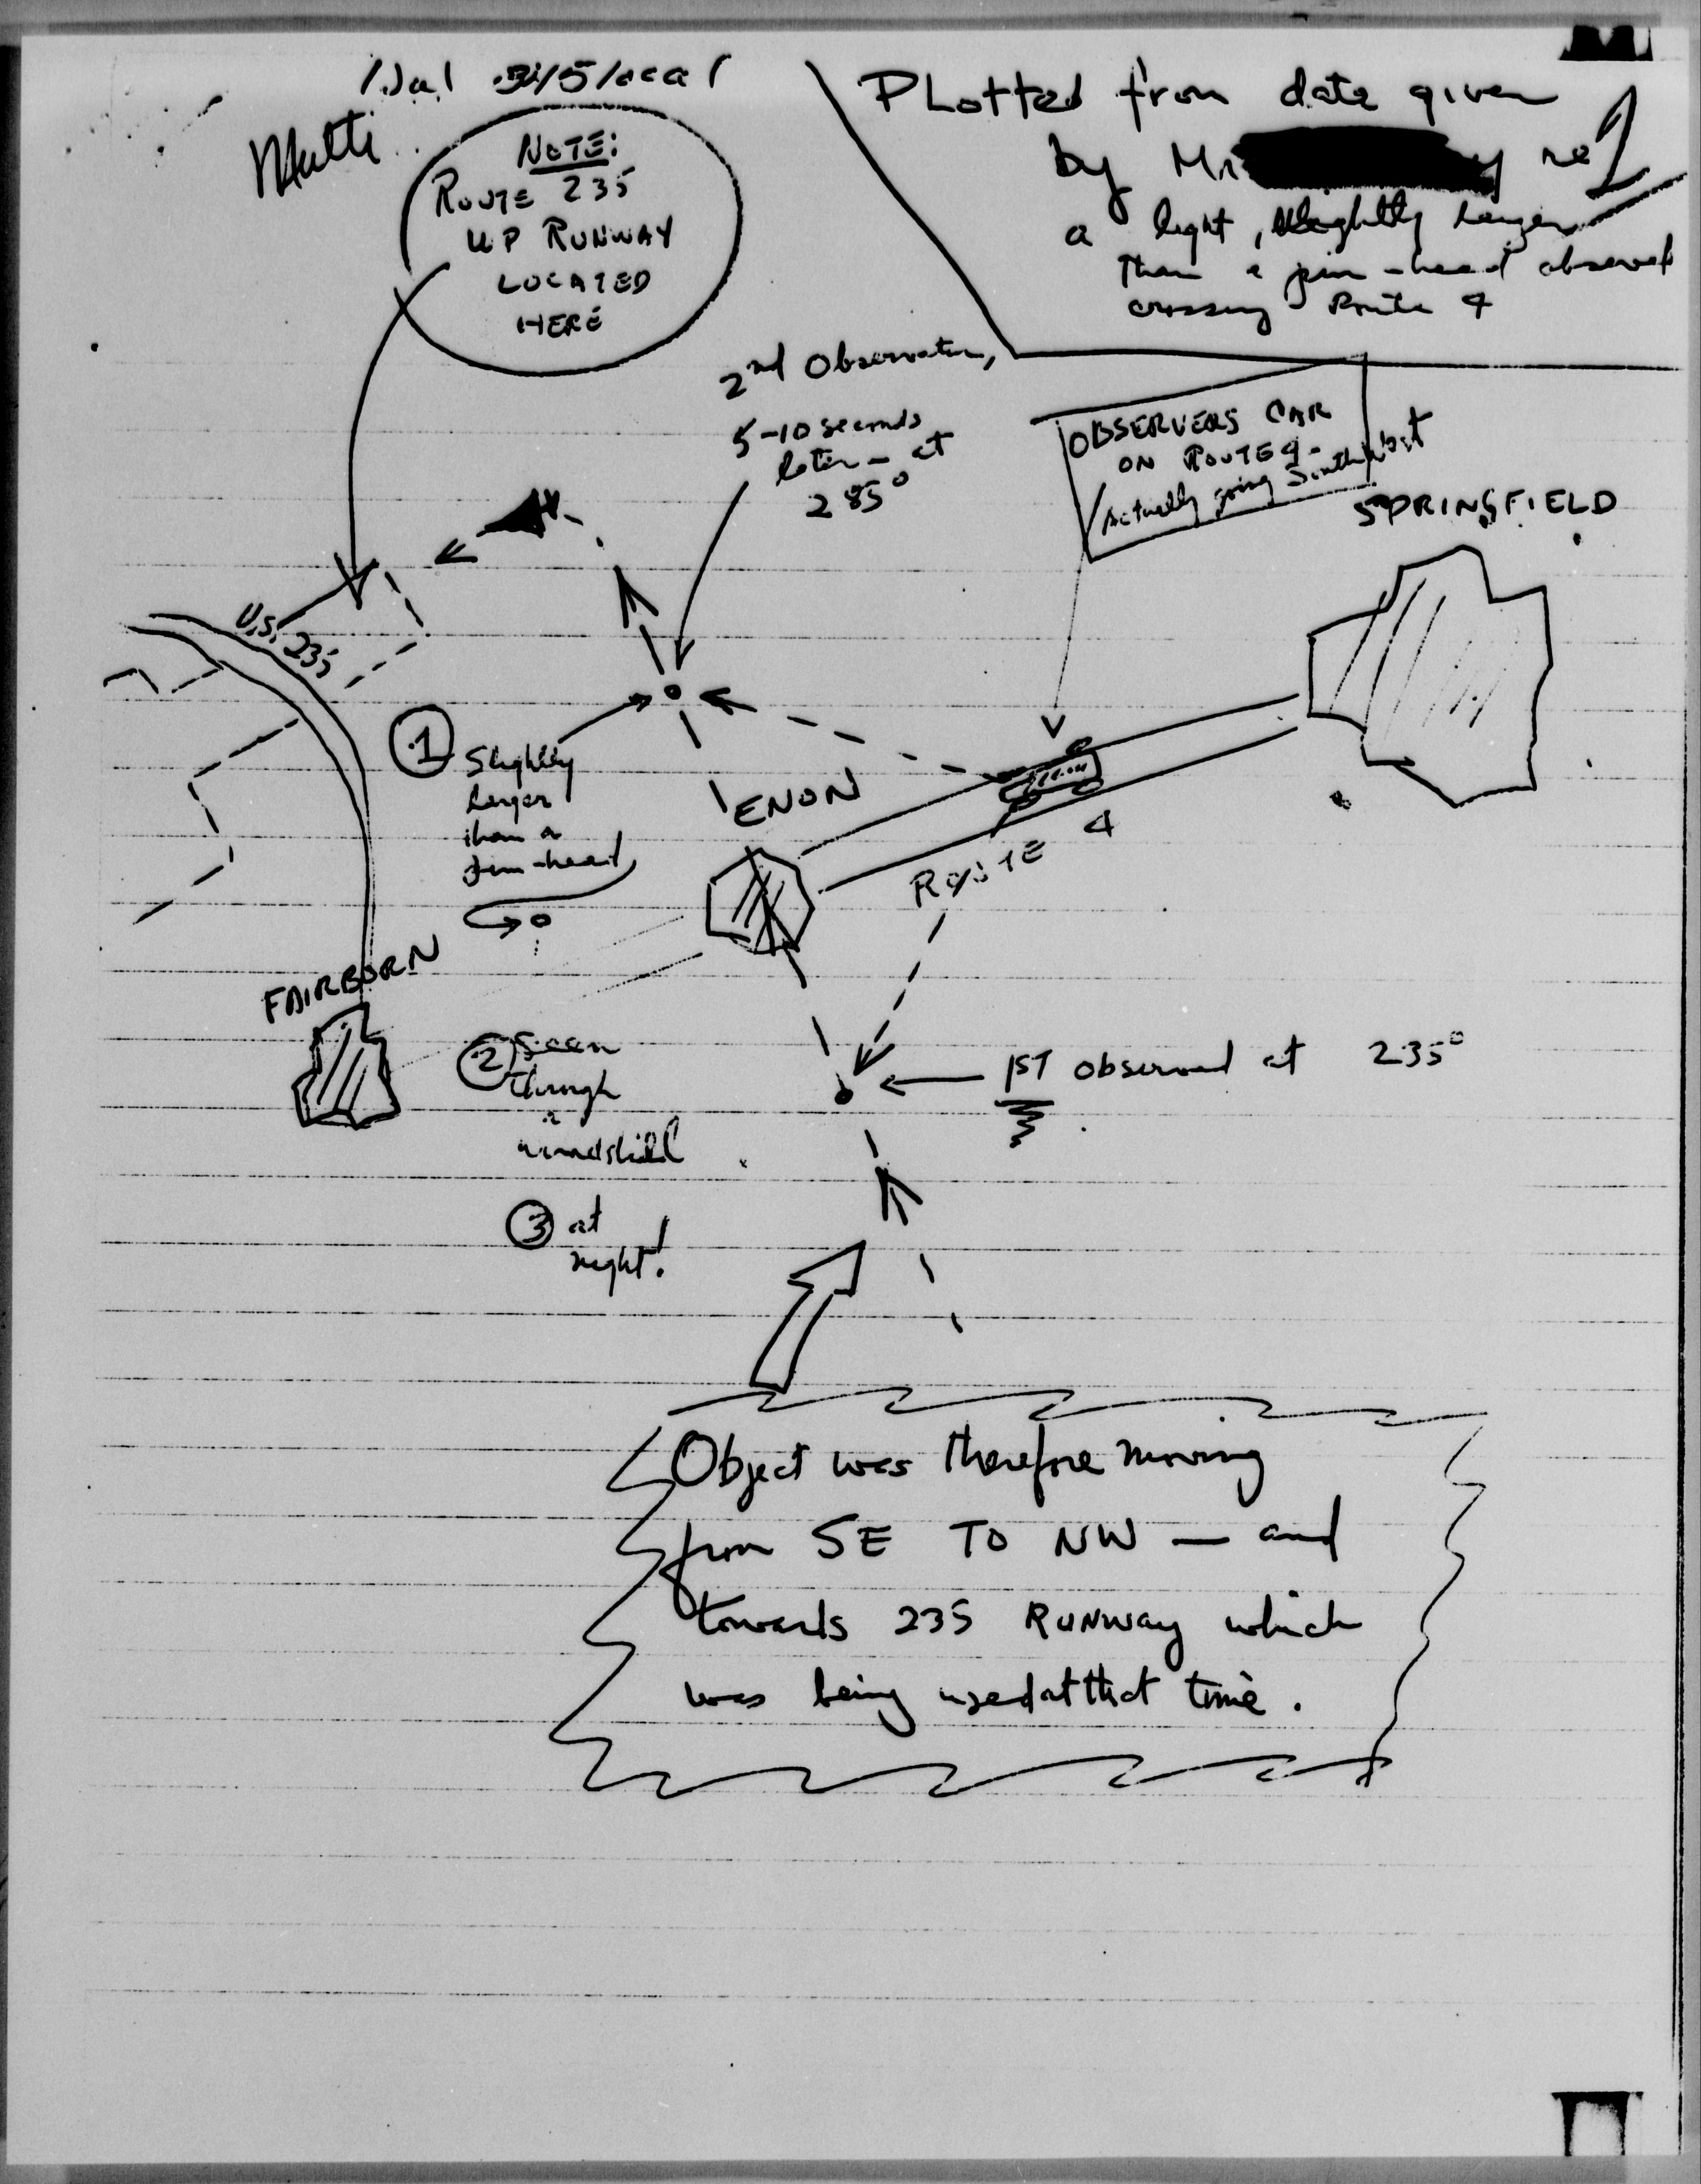 NOTE:
ROUTE 235
WP RUNWAY
LOCATED
HERE
PLotted from data given
by Mr y re
a light, slightly larger
than a pin-head observed
crossing Route 4
2nd Observation,
5-10 seconds
later - at
285°
OBSERVERS CAR
ON ROUTE 4-
Actually going Southwest
SPRINGFIELD
U.S. 235
1
Slightly
larger
than a
pin-head
ENON
ROUTE 4
FAIRBORN
2 Seen
through
a
windshield
1ST observed at 235°
3 at
night!
Object was therefore moving
from SE TO NW — and
towards 235 RUNWAY which
was being used at that time.